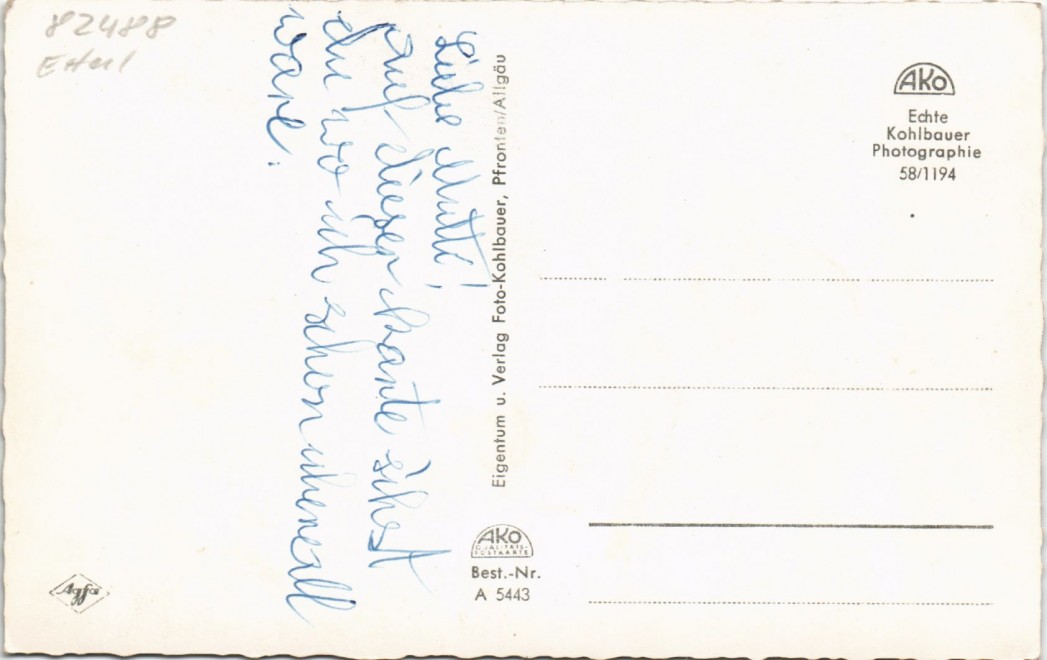 82488
Ettal
Liebe Mutti!
Auf dieser Kante sihest
du wo ich schon uberall
ware.
Eigentum u. Verlag Foto-Kohlbauer, Pfronten/Allgäu
AKO
QUALITÄTS-
POSTKARTE
Best.-Nr.
A 5443
Agfa
AKO
Echte
Kohlbauer
Photographie
58/1194